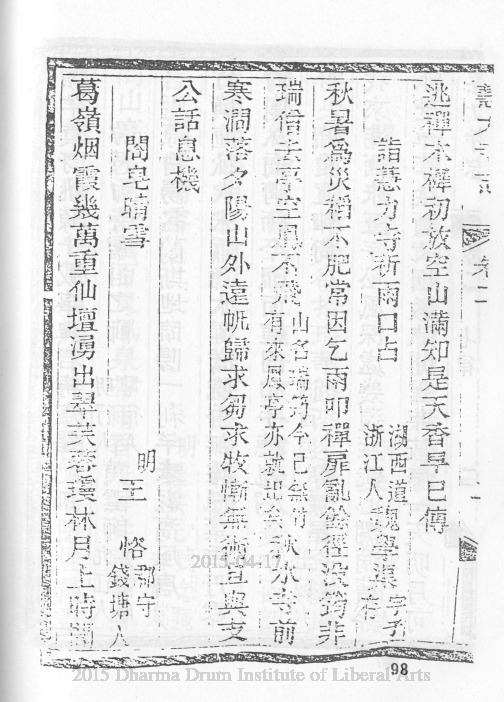 卷二
逃禪木樨初放空山滿知是天香早已傳
詣慧力寺祈雨口占
湖西道
浙江人
魏學渠
字子
存
秋暑爲災稻不肥常因乞雨叩禪扉亂餘徑没筠非
瑞信去亭空鳳不飛
山名瑞筠今已無竹
有來鳳亭亦就圮矣
秋水寺前
寒澗落夕陽山外遠帆歸求芻求牧慚無術且與支
公話息機
閤皂晴雪
明
王恪
郡守
錢塘人
葛嶺烟霞幾萬重仙壇湧出翠芙蓉瓊林月上時聞
2015-04-17
98
2015 Dharma Drum Institute of Liberal Arts